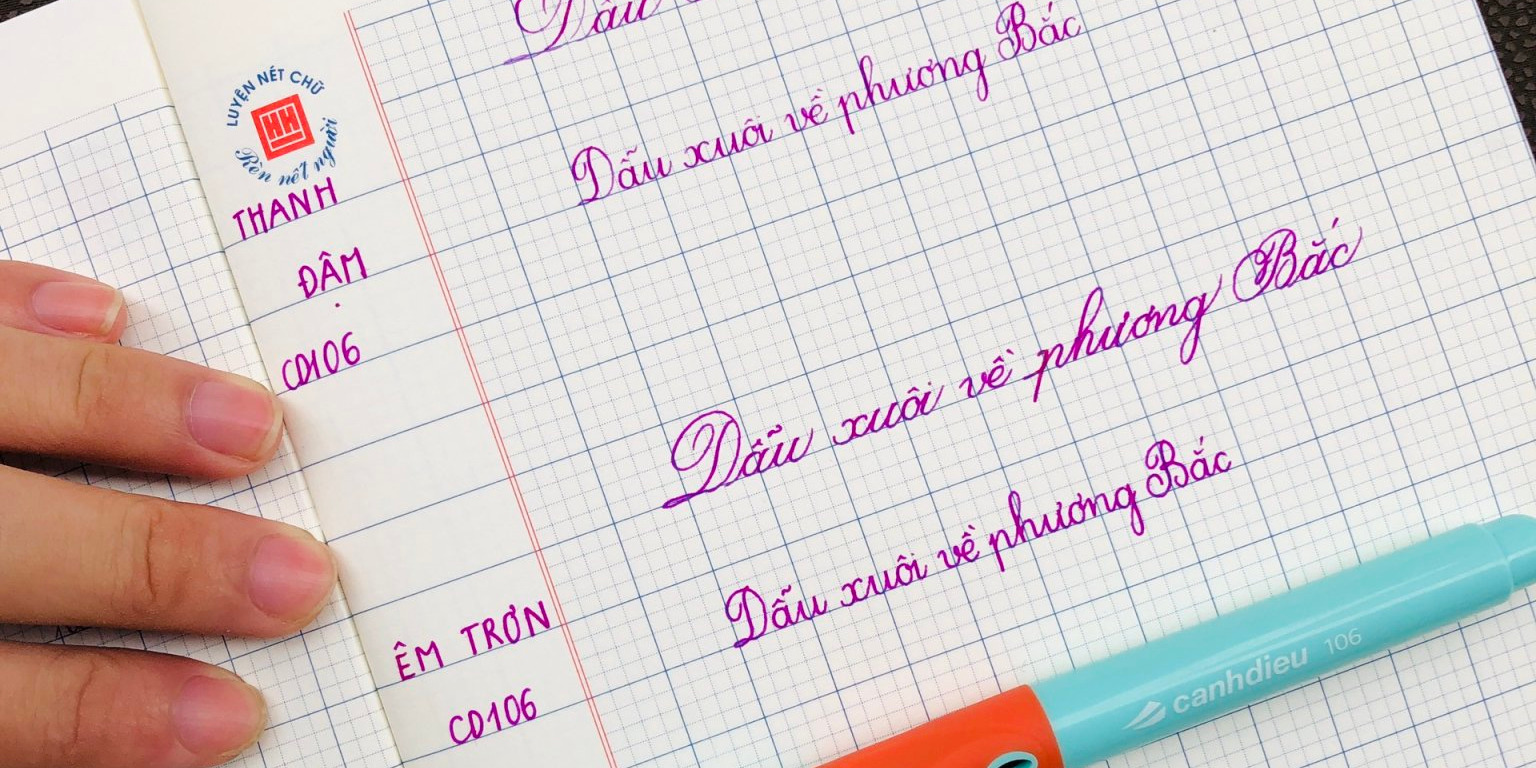 Dẫu
LUYỆN NÉT CHỮ
HH
Rèn nết người
Dẫu xuôi về phương Bắc
THANH
ĐẬM
CD106
Dẫu xuôi về phương Bắc
Dẫu xuôi về phương Bắc
ÊM TRƠN
CD106
canhdieu 106